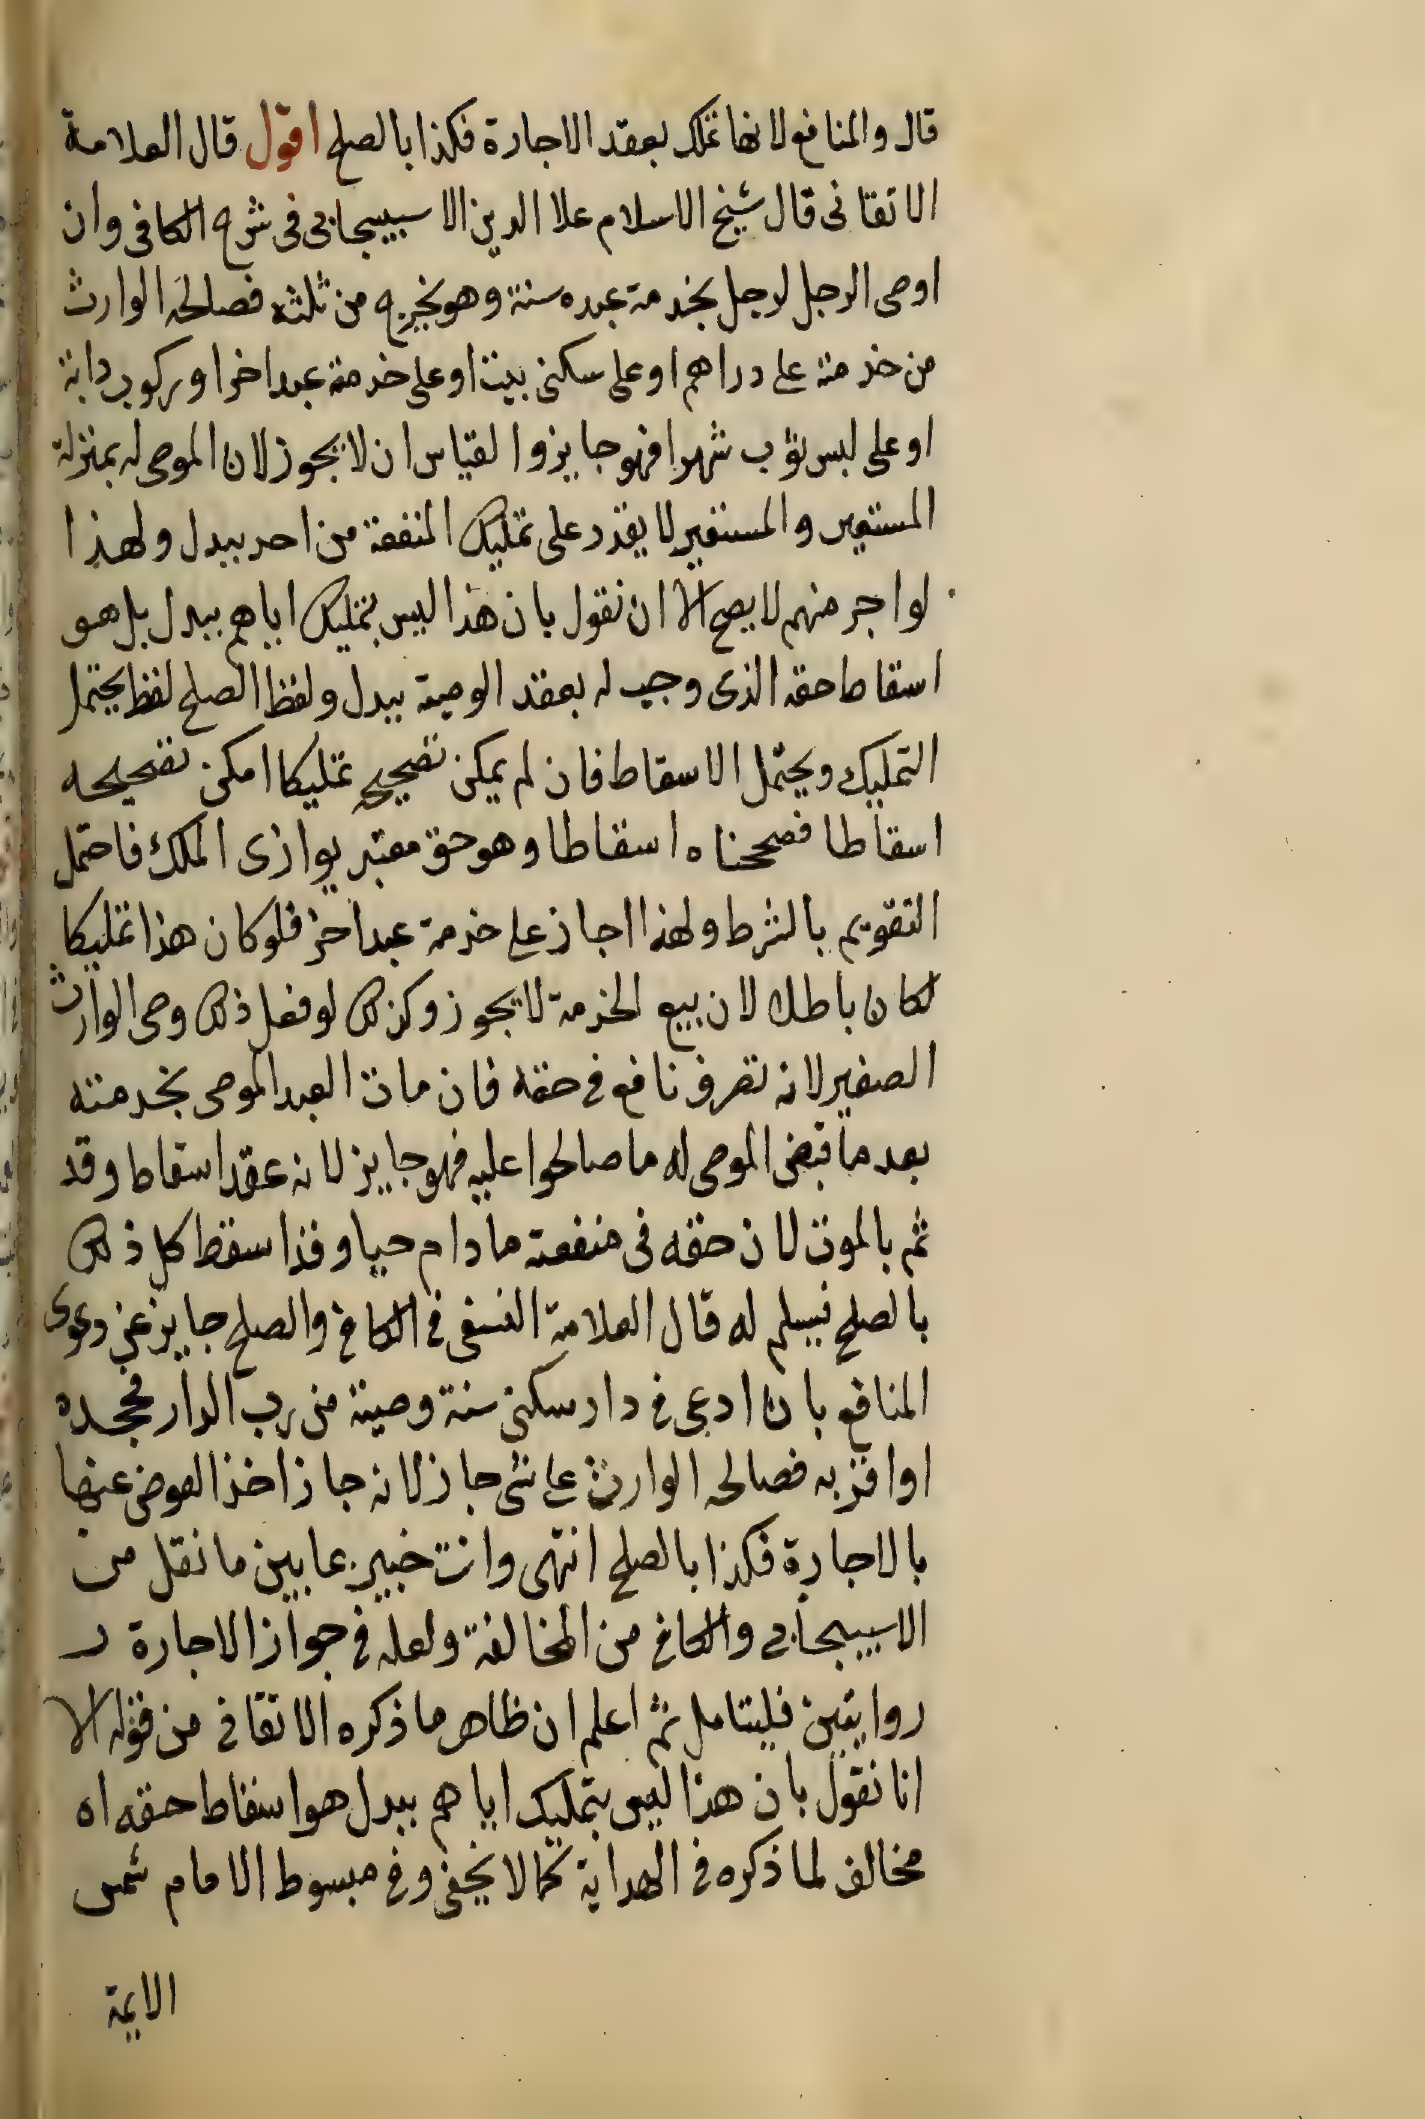 قال والمنافع لانها تملك بعقد الاجارة فكذا بالصلح اقول قال العلامة
الاتقانى قال شيخ الاسلام علا الدين الاسبيجابى فى شرح الكافى وان
اوصى الرجل لرجل بخدمة عبده سنة وهو يخرج من ثلثه فصالحه الوارث
من خدمته على دراهم او على سكنى بيت او على خدمة عبد اخر او ركوب دابة
او على لبس ثوب شهرا فهو جايز والقياس ان لا يجوز لان الموصى له بمنزلة
المستعير والمستعير لا يقدر على تمليك المنفعة من احد ببدل ولهذا
لو اجر منهم لا يصح الا ان نقول بان هذا ليس بتمليك اياهم ببدل بل هو
اسقاط حقه الذى وجب له بعقد الوصية ببدل ولفظ الصلح لفظ يحتمل
التمليك ويحتمل الاسقاط فان لم يمكن تصحيحه تمليكا امكن تصحيحه
اسقاطا فصححناه اسقاطا وهو حق معتبر يوازى الملك فاحتمل
التقويم بالشرط ولهذا اجاز على خدمة عبد اخر فلو كان هذا تمليكا
لكان باطلا لان بيع الخدمة لا يجوز وكذلك لو فعل ذلك وصى الوارث
الصغير لانه تصرف نافع فى حقه فان مات العبد الموصى بخدمته
بعد ما قبض الموصى له ما صالحوا عليه فهو جايز لانه عقد اسقاط وقد
تم بالموت لان حقه فى منفعته ما دام حيا وقد اسقط كل ذلك
بالصلح فيسلم له قال العلامة النسفى فى الكافى والصلح جايز عن دعوى
المنافع بان ادعى فى دار سكنى سنة وصية من رب الدار فجحده
او اقر به فصالحه الوارث على شئ جاز لانه جاز اخذ العوض عنها
بالاجارة فكذا بالصلح انتهى وانت خبير بما بين ما نقل من
الاسبيجابى والكافى من المخالفة ولعله فى جواز الاجارة ر
روايتين فليتامل ثم اعلم ان ظاهر ما ذكره الاتقانى من قوله الا
انا نقول بان هذا ليس بتمليك اياهم ببدل هو اسقاط حقه اه
مخالف لما ذكره فى الهداية كما لا يخفى وفى مبسوط الامام شمس
الايمة